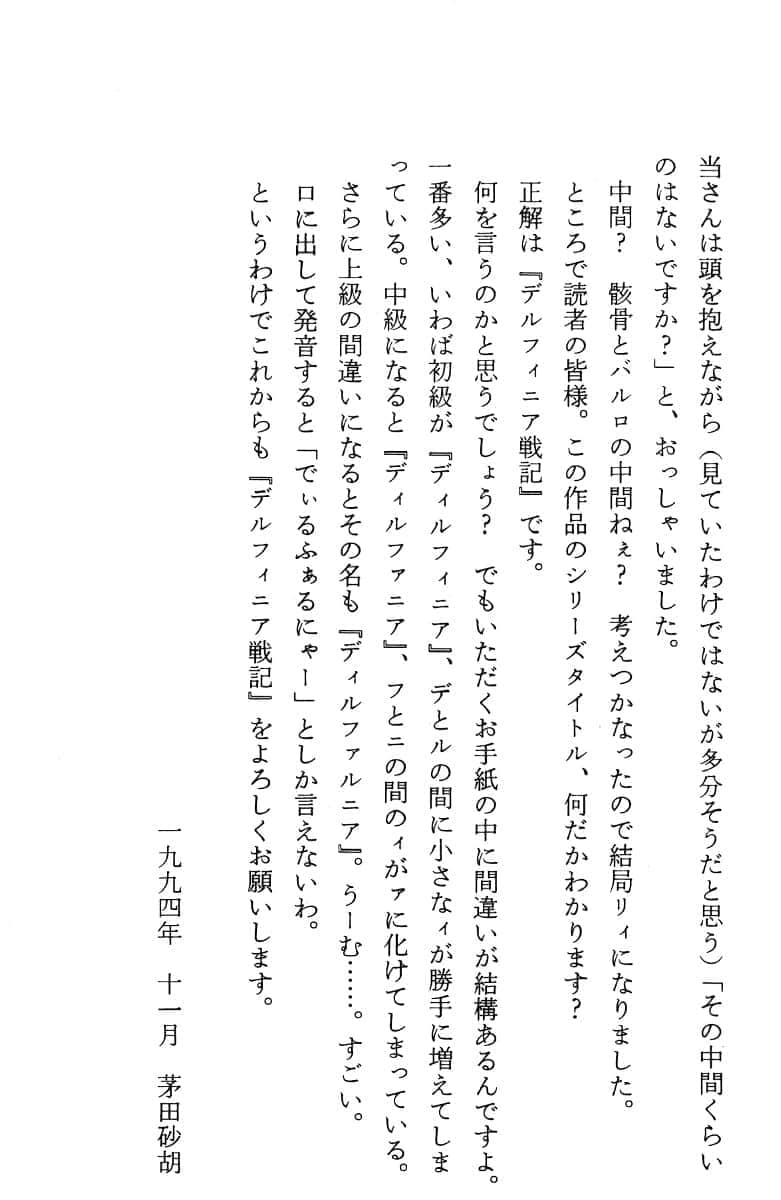 当さんは頭を抱えながら（見ていたわけではないが多分そうだと思う）「その中間くらい
のはないですか？」と、おっしゃいました。
中間？　骸骨とバルロの中間ねぇ？　考えつかなったので結局リィになりました。
ところで読者の皆様。この作品のシリーズタイトル、何だかわかります？
正解は『デルフィニア戦記』です。
何を言うのかと思うでしょう？　でもいただくお手紙の中に間違いが結構あるんですよ。
一番多い、いわば初級が『ディルフィニア』、デとルの間に小さなィが勝手に増えてしま
っている。中級になると『ディルファニア』、フとニの間のィがァに化けてしまっている。
さらに上級の間違いになるとその名も『ディルファルニア』。うーむ……。すごい。
口に出して発音すると「でぃるふぁるにゃー」としか言えないわ。
というわけでこれからも『デルフィニア戦記』をよろしくお願いします。
一九九四年　十一月　茅田砂胡